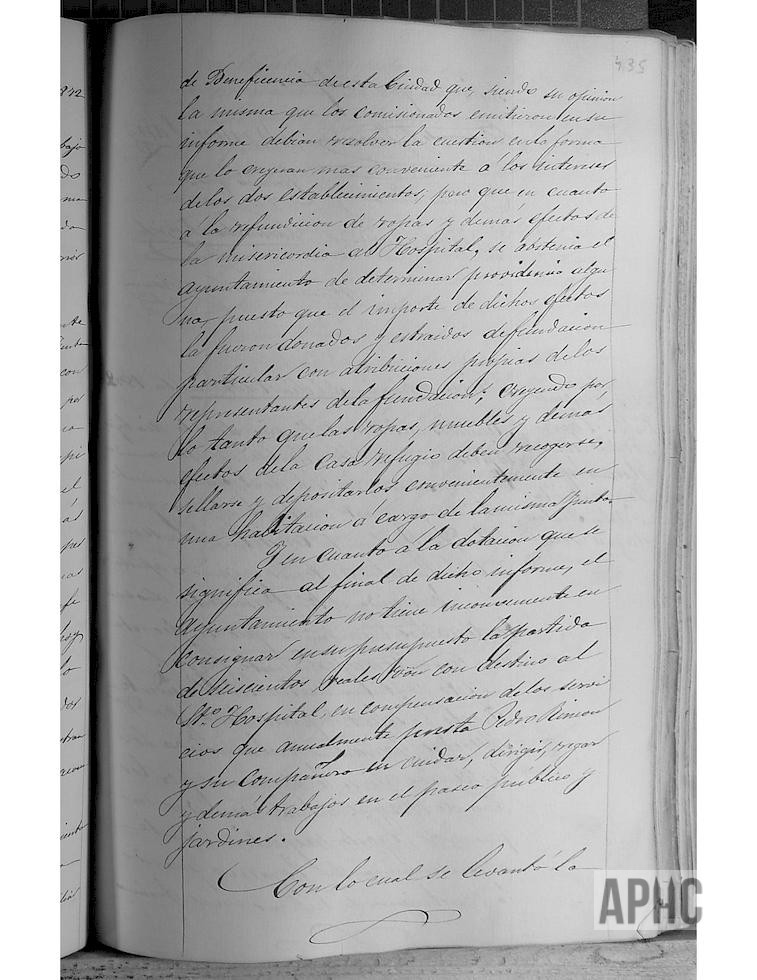 435
de Beneficencia de esta Ciudad que, siendo su opinion
la misma que los comisionados emitieron en su
informe debian resolver la cuestion en la forma
que lo creyeran mas conveniente á los intereses
de los dos establecimientos; pero que en cuanto
a la refundicion de ropas y demás efectos de
la misericordia al Hospital, se abstenia el
ayuntamiento de determinar providencia algu
na, puesto que el importe de dichos efectos
la fueron donados y estraidos de fundacion
particular con atribuciones propias de los
representantes de la fundacion: Creyendo por
lo tanto que las ropas, muebles y demás
efectos de la Casa refugio deben recogerse,
sellarse y depositarlos convenientemente en
una habitacion á cargo de la misma Junta.
Y en cuanto á la dotacion que se
significa al final de dicho informe, el
Ayuntamiento no tiene inconveniente en
consignar en su presupuesto la partida
de seiscientos reales von con destino al
Sto. Hospital, en compensacion de los servi
cios que anualmente presta Pedro Simon
y su compañero en cuidar, dirigir, regar
y demas trabajos en el paseo público y
jardines.
Con lo cual se levantó la
APHC